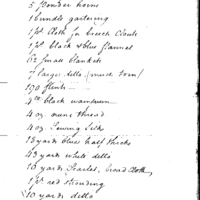 5 powder horns
1 bundle gartering
1 ps Cloth for breech Clouts
1 ps black & blue flannel
small blankets
7 large dells (much torn)
190 flints
black wampum
4 oz. ouns thread
4 oz Sewing Silk
13 yards blue half thicks
43 yard white dells
10 yards Scarlet, broad Cloth
1 ps red strouding
10 yards dells